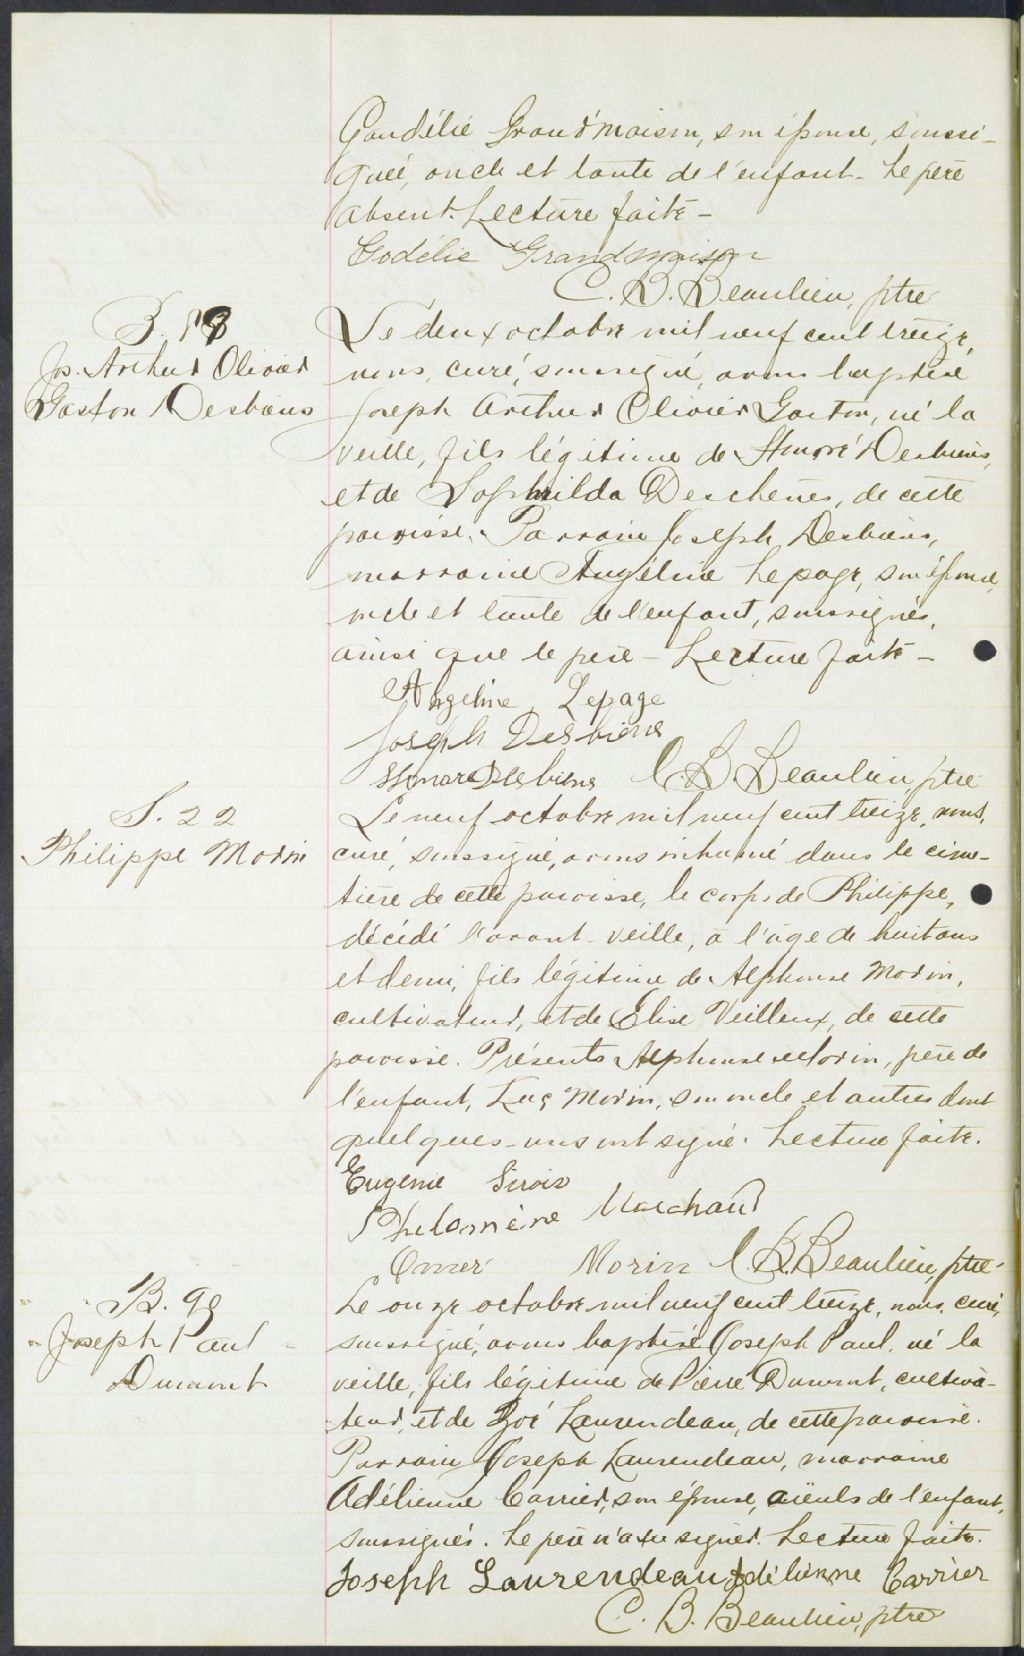 Gaudélie Grand'maison, son épouse, soussi-
gnée, oncle et tante de l'enfant. Le père
absent. Lecture faite -
Godélie Grandmaison
C. B. Beaulieu, ptre
B. 98
Jos. Arthur Olivier
Gaston Desbiens
Le deux octobre mil neuf cent treize,
nous, curé, soussigné, avons baptisé
Joseph Arthur Olivier Gaston, né la
veille, fils légitime de Honoré Desbiens,
et de Deschenes, de cette
paroisse. Parrain Joseph Desbiens,
marraine Angélina Lepage, son épouse,
oncle et tante de l'enfant, soussignés,
ainsi que le père - Lecture faite -
Angeline Lepage
Joseph Desbiens
Honoré Desbiens C. B. Beaulieu, ptre
S. 22
Philippe Morin
Le neuf octobre mil neuf cent treize, nous,
curé, soussigné, avons inhumé dans le cime-
tière de cette paroisse, le corps de Philippe,
décédé l'avant-veille, à l'âge de huit ans
et demi, fils légitime de Alphonse Morin,
cultivateur, et de Elise Veilleux, de cette
paroisse. Présents Alphonse Morin, père de
l'enfant, Luc Morin, son oncle et autres dont
quelques-uns ont signé. Lecture faite.
Eugenie Sirois
Philomène Marchand
Omer Morin C. B. Beaulieu, ptre
B. 99
Joseph Paul
Dumont
Le onze octobre mil neuf cent treize, nous, curé,
soussigné, avons baptisé Joseph Paul, né la
veille, fils légitime de Pierre Dumont, cultiva-
teur, et de Zoé Laurendeau, de cette paroisse.
Parrain Joseph Laurendeau, marraine
Adélienne Carrier, son épouse, aïeuls de l'enfant,
soussignés. Le père n'a su signer. Lecture faite.
Joseph Laurendeau Adélienne Carrier
C. B. Beaulieu, ptre